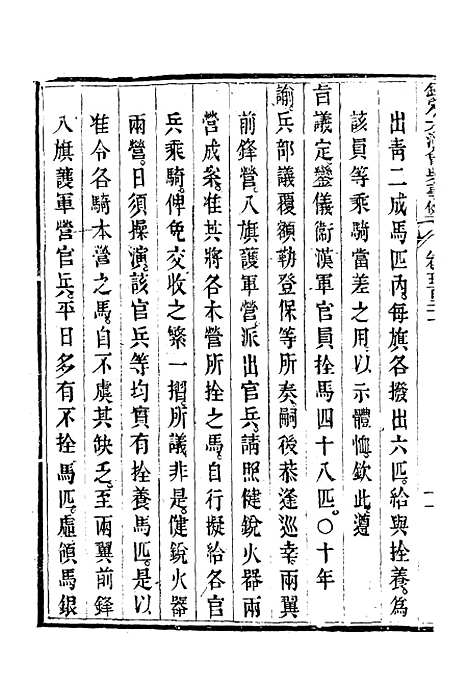 出青二成馬匹內。每旗各撥出六匹。給與拴養。為
該員等乘騎當差之用。以示體恤。欽此。遵
旨議定鑾儀衞漢軍官員拴馬四十八匹。○十年
諭。兵部議覆額勒登保等所奏。嗣後恭逢巡幸。兩翼
前鋒營。八旗護軍營。派出官兵。請照健銳火器兩
營成案。准其將各本營所拴之馬。自行擬給各官
兵乘騎。俾免交收之繁一摺。所議非是。健銳火器
兩營。日須操演。該官兵等均實有拴養馬匹。是以
准令各騎本營之馬。自不虞其缺乏。至兩翼前鋒
八旗護軍營官兵。平日多有不拴馬匹。虛領馬銀